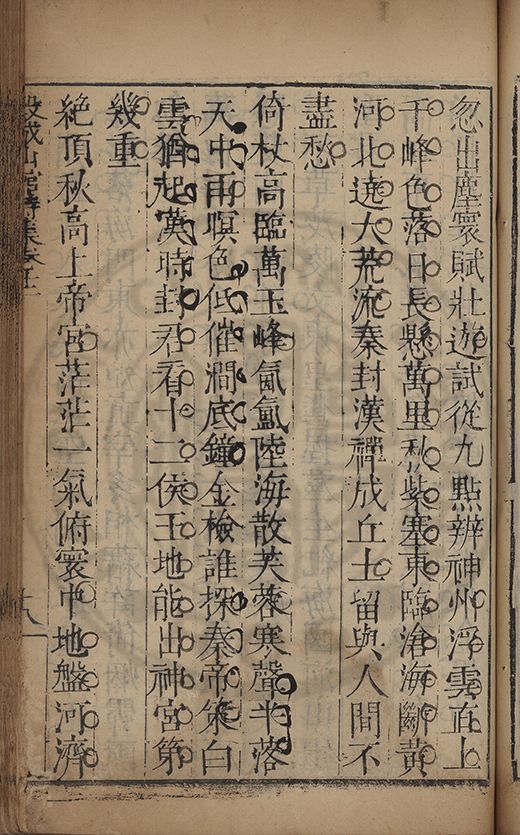 忽出塵寰賦壯遊試從九點辨神州浮雲直上
千峰色落日長懸萬里秋紫塞東臨滄海斷黃
河北遶大荒流秦封漢禪成丘土留與人間不
盡愁
倚杖高臨萬玉峰氤氳陸海散芙蓉寒聲半落
天中雨暝色低催澗底鐘金檢誰探秦帝策白
雲猶起漢時封君看十二侯王地能出神宮第
幾重
絕頂秋高上帝宮茫茫一氣俯寰中地盤河濟
城山館詩集卷